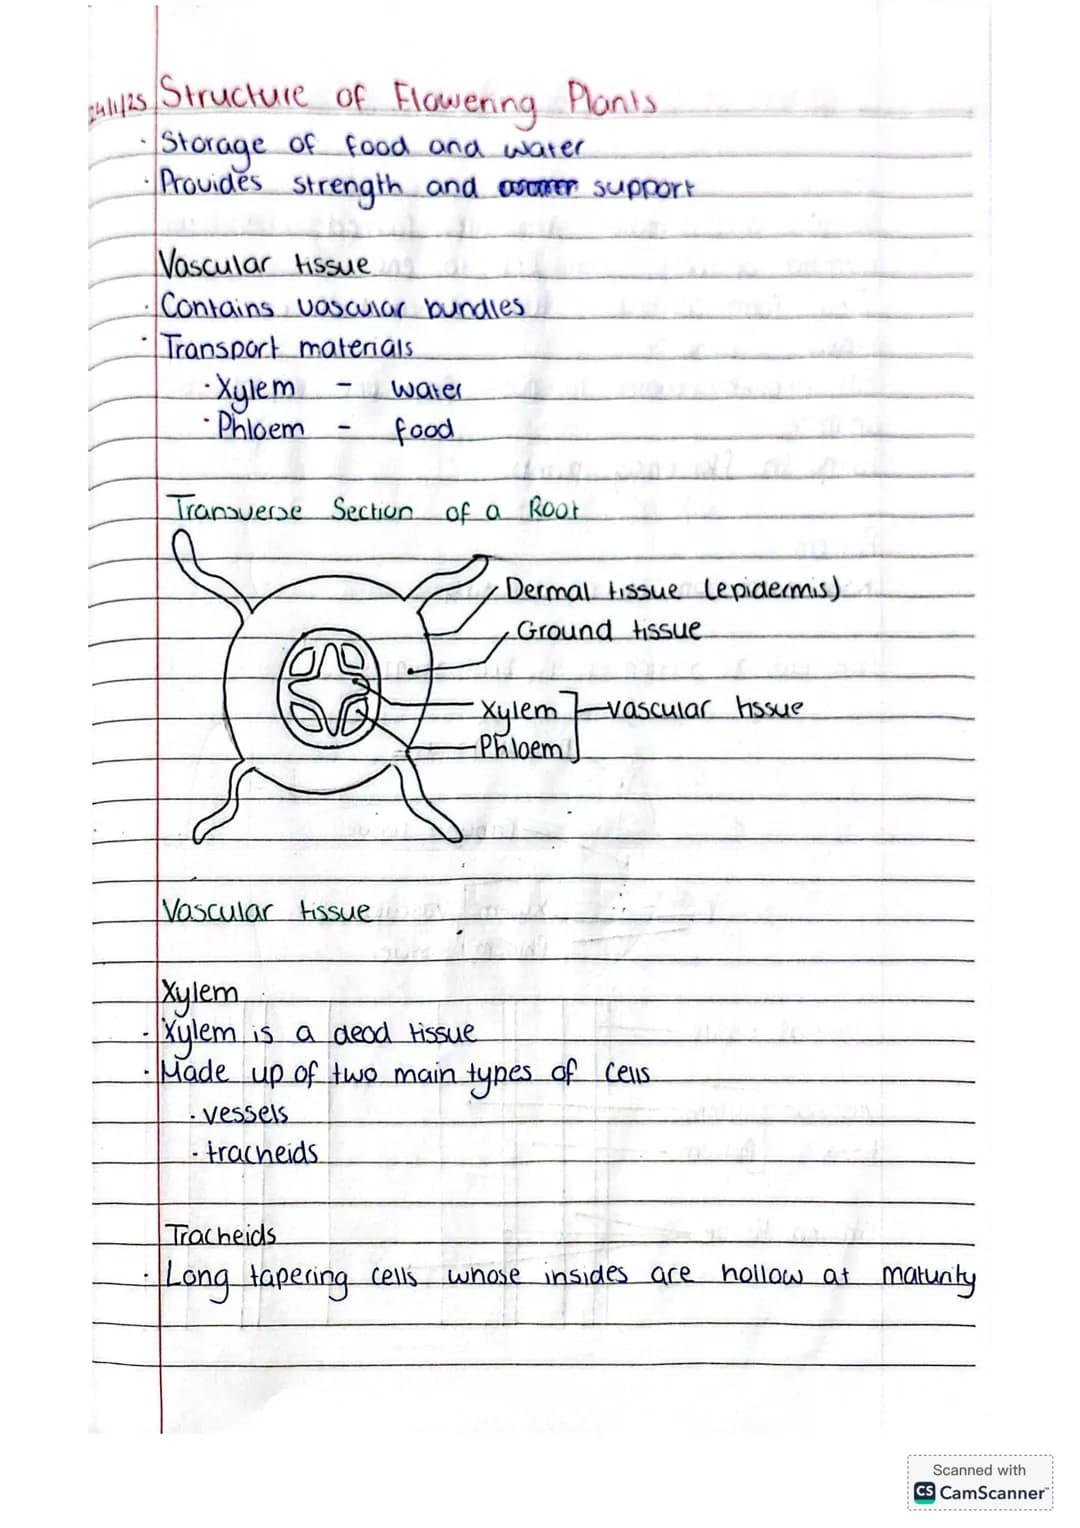 24/1/25 Structure of Flowering Plants
· Storage of food and water
· Provides strength and support
Vascular tissue
· Contains vascular bundles
· Transport materials
· Xylem - water
· Phloem - food
Transverse Section of a Root
Dermal tissue (epidermis)
Ground tissue
Xylem
vascular tissue
Phloem
Vascular tissue
Xylem
· Xylem is a dead tissue
· Made up of two main types of cells
· vessels
· tracheids
Tracheids
· Long tapering cells whose insides are hollow at maturity
Scanned with
CS CamScanner